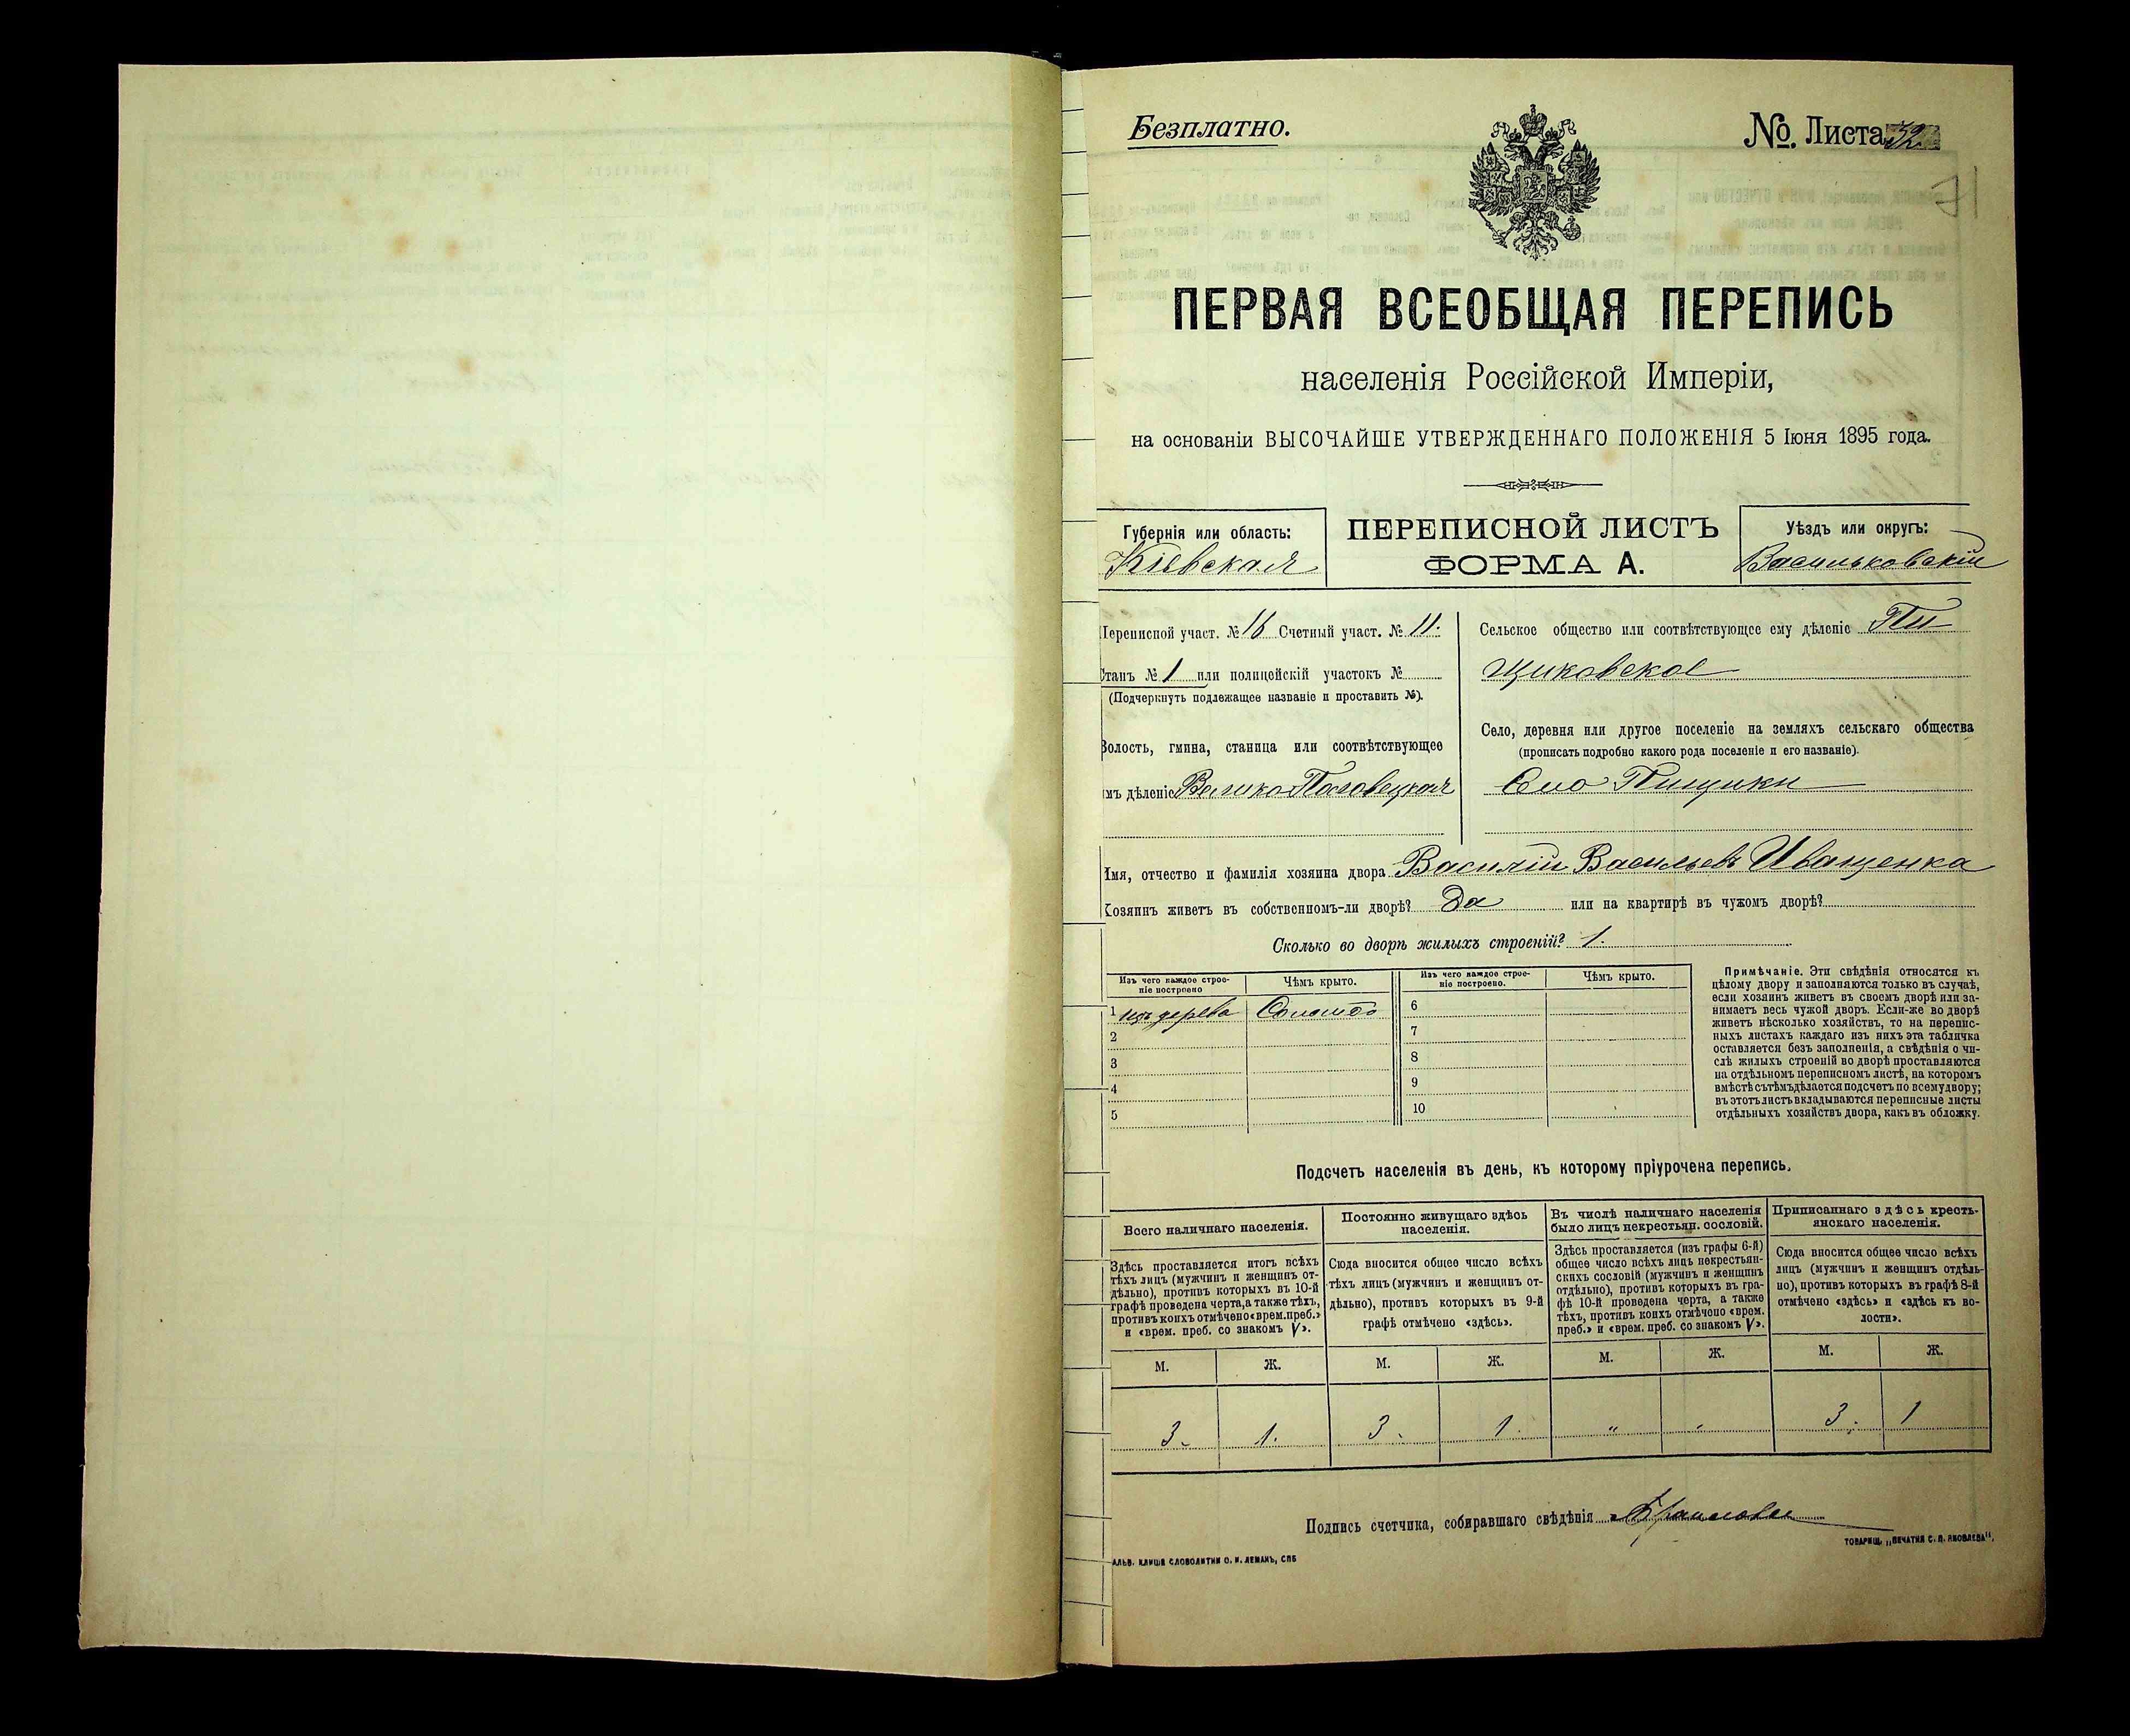 Безплатно.
№. Листа 32
71
ПЕРВАЯ ВСЕОБЩАЯ ПЕРЕПИСЬ
населенія Россійской Имперіи,
на основаніи ВЫСОЧАЙШЕ УТВЕРЖДЕННАГО ПОЛОЖЕНІЯ 5 Іюня 1895 года.
Губернія или область:
Кіевская
ПЕРЕПИСНОЙ ЛИСТЪ
ФОРМА А.
Уѣздъ или округъ:
Васильковскій
Переписной участ. № 16 Счетный участ. № 11.
Станъ № 1 или полицейскій участокъ №
(Подчеркнуть подлежащее названіе и проставить №).
Волость, гмина, станица или соотвѣтствующее
имъ дѣленіе Велико Половецкая
Сельское общество или соотвѣтствующее ему дѣленіе Пи
щиковское
Село, деревня или другое поселеніе на земляхъ сельскаго общества
(прописать подробно какого рода поселеніе и его названіе).
Село Пищики
Имя, отчество и фамилія хозяина двора Василій Васильевъ Иващенка
Хозяинъ живетъ въ собственномъ-ли дворѣ? Да или на квартирѣ въ чужомъ дворѣ?
Сколько во дворѣ жилыхъ строеній? 1.
Изъ чего каждое строе-
ніе построено
Чѣмъ крыто.
Изъ чего каждое строе-
ніе построено.
Чѣмъ крыто.
1 изъ дерева Соломою 6
2 7
3 8
4 9
5 10
Примѣчаніе. Эти свѣдѣнія относятся къ
цѣлому двору и заполняются только въ случаѣ,
если хозяинъ живетъ въ своемъ дворѣ или за-
нимаетъ весь чужой дворъ. Если-же во дворѣ
живетъ нѣсколько хозяйствъ, то на перепис-
ныхъ листахъ каждаго изъ нихъ эта табличка
оставляется безъ заполненія, а свѣдѣнія о чи-
слѣ жилыхъ строеній во дворѣ проставляются
на отдѣльномъ переписномъ листѣ, на которомъ
вмѣстѣ съ тѣмъ дѣлается подсчетъ по всему двору;
въ этотъ листъ вкладываются переписные листы
отдѣльныхъ хозяйствъ двора, какъ въ обложку.
Подсчетъ населенія въ день, къ которому пріурочена перепись.
Всего наличнаго населенія.
Здѣсь проставляется итогъ всѣхъ
тѣхъ лицъ (мужчинъ и женщинъ от-
дѣльно), противъ которыхъ въ 10-й
графѣ проведена черта, а также тѣхъ,
противъ коихъ отмѣчено «врем. преб.»
и «врем. преб. со знакомъ V».
Постоянно живущаго здѣсь
населенія.
Сюда вносится общее число всѣхъ
тѣхъ лицъ (мужчинъ и женщинъ от-
дѣльно), противъ которыхъ въ 9-й
графѣ отмѣчено «здѣсь».
Въ числѣ наличнаго населенія
было лицъ некрестьян. сословій.
Здѣсь проставляется (изъ графы 6-й)
общее число всѣхъ лицъ некрестьян-
скихъ сословій (мужчинъ и женщинъ
отдѣльно), противъ которыхъ въ гра-
фѣ 10-й проведена черта, а также
тѣхъ, противъ коихъ отмѣчено «врем.
преб.» и «врем. преб. со знакомъ V».
Приписаннаго здѣсь кресть-
янскаго населенія.
Сюда вносится общее число всѣхъ
лицъ (мужчинъ и женщинъ отдѣль-
но), противъ которыхъ въ графѣ 8-й
отмѣчено «здѣсь» и «здѣсь къ во-
лости».
М. Ж. М. Ж. М. Ж. М. Ж.
3. 1. 3. 1. " " 3. 1
Подпись счетчика, собиравшаго свѣдѣнія
АЛЬВ. КЛИШЕ СЛОВОЛИТНИ О. И. ЛЕМАНЪ, СПБ
ТОВАРИЩ. „ПЕЧАТНЯ С. П. ЯКОВЛЕВА".